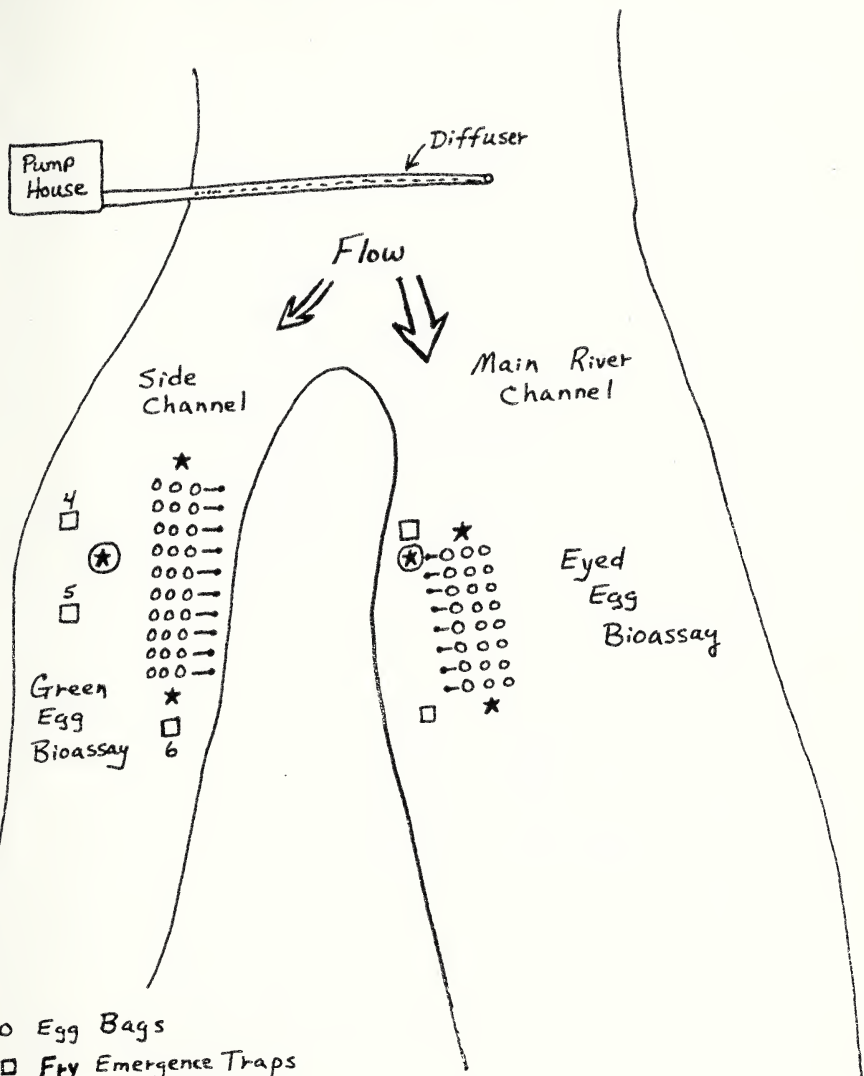 Pump
House
Diffuser
Flow
Side
Channel
Main River
Channel
4
5
Green
Egg
Bioassay
6
Eyed
Egg
Bioassay
Egg Bags
Fry Emergence Traps